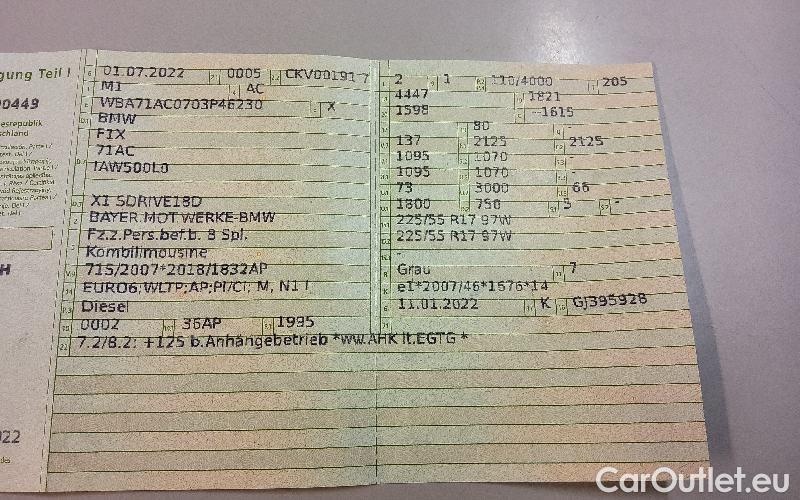 gung Teil I
01.07.2022 0005 CKV00191 7
M1 AC
0449
WBA71AC0703P46230 X
BMW
esrepublik
F1X
schland
71AC
IAW500L0
X1 SDRIVE18D
BAYER.MOT.WERKE-BMW
Fz.z.Pers.bef.b. 8 Spl.
Kombilimousine
H
715/2007*2018/1832AP
EURO6;WLTP;AP;PI/CI; M, N1 I
Diesel
0002 36AP 1995
7.2/8.2: +125 b.Anhängebetrieb *ww.AHK lt.EGTG *
022
2 1 110/4000 205
4447 1821
1598 --1615
80 -
137 2125 2125
1095 1070 -
1095 1070 -
73 3000 66
1800 750 5 -
225/55 R17 97W
225/55 R17 97W
-
Grau 7
e1*2007/46*1676*14
11.01.2022 K GJ395928
CarOutlet.eu